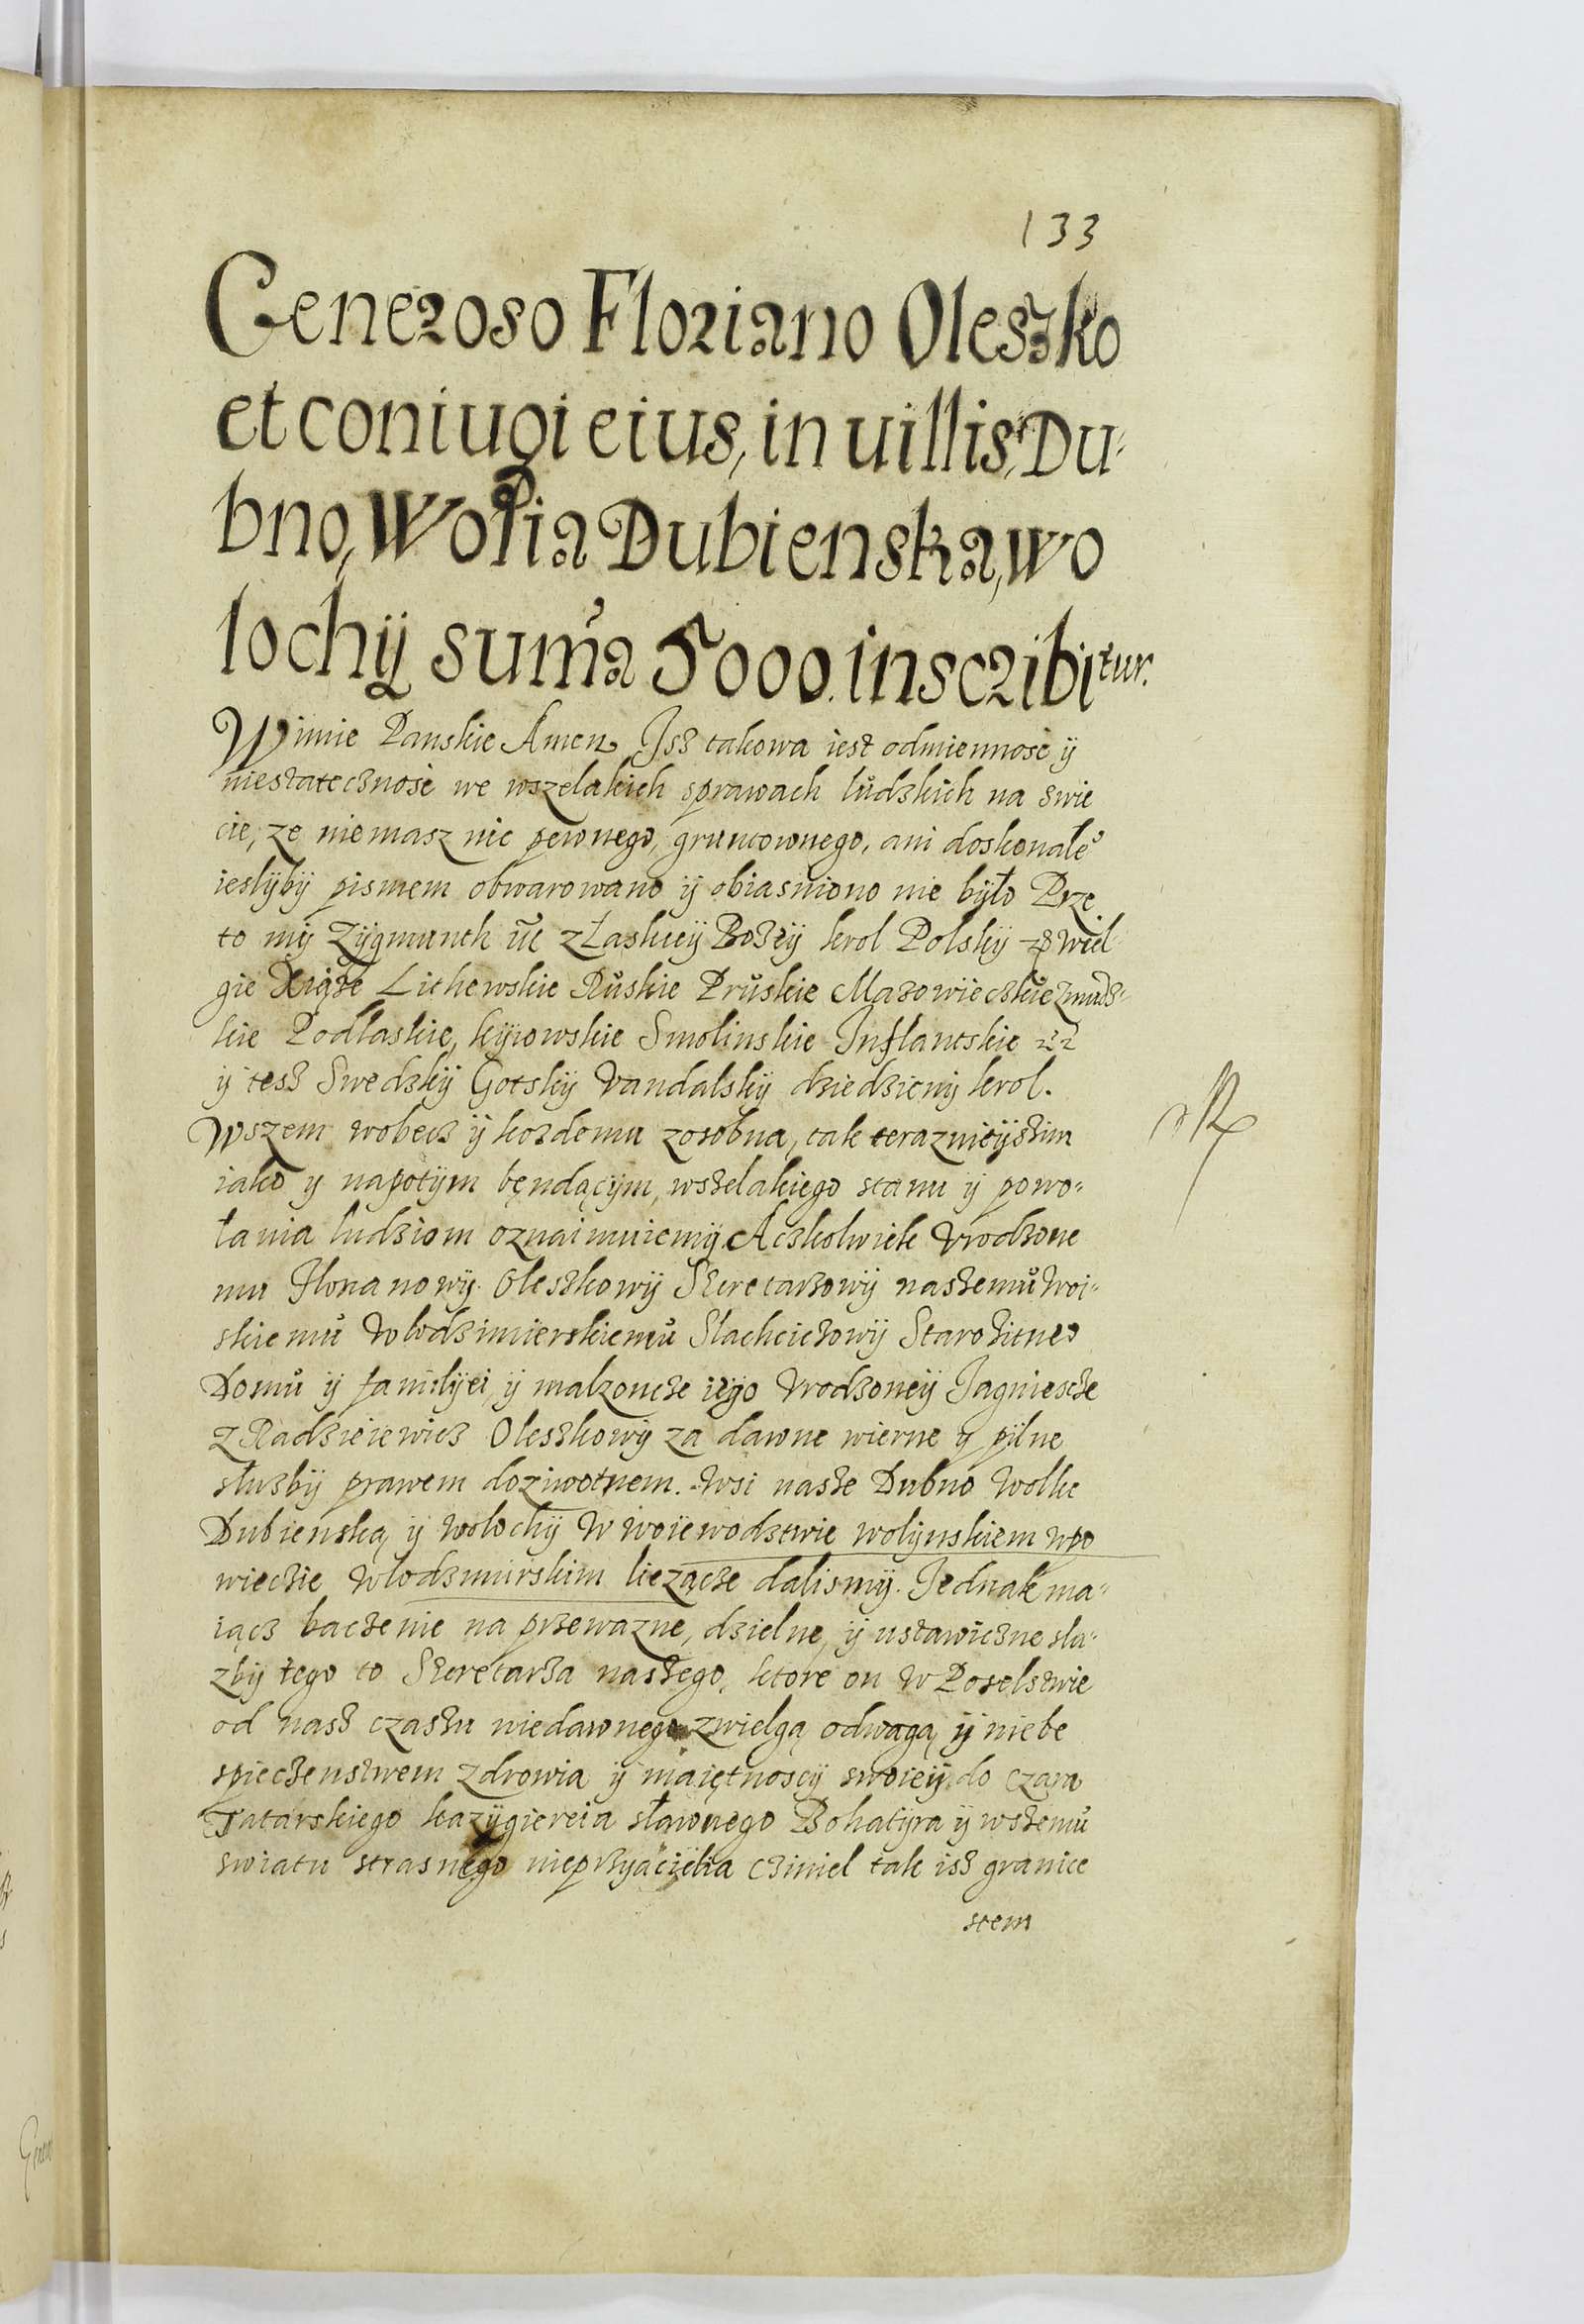 133
Generoso Floriano Oleszko
et coniugi eius, in uillis, Du-
bno, Wolia Dubienska, wo
lochij sum̃a 5000. inscribitur.
W imie Panskie Amen Isz takowa iest odmiennosć ij
niestatecznosć we wszelakich sprawach ludzkich na swie
cie, ze nie masz nic pewnego, gruntownego, ani doskonałeº
ieslijbij pismem obwarowano ij obiasniono nie było Prze
to mij Zijgmunth z Łaskieij Bozeij krol Polskij Wiel
gie Xiąze Lithewskie Ruskie Pruskie Mazowieczkie zmudz-
kie Podlaskie, kijiowskie Smolinskie Inflantskie
ij tesz Swedzkij Gotskij Vandalskij dziedzicnij krol.
Wszem wobecz ij kozdemu zosobna, tak teraznieijszim
iako y napotijm będącijm, wszelakiego stanu ij powo-
łania ludziom oznaimuiemij. Aczkolwiek Vrodzone
mu Florianowij Oleszkowij Secretarzowij naszemu Woi-
skiemu Wlodzimierskiemu Slachcicowij Starozitneº
Domu ij familijei, ij malzoncze iego Vrodzoneij Jagniescze
z Radzieiewicz Oleszkowij za dawne wierne y pijlne
sluzbij prawem doziwotnem. Wsi nasze Dubno Wolke
Dubienską ij Wolochij W woiewodztwie wolijnskiem w po
wieczie Wlodzimirskim liezącze dalismij. Jednak ma-
iącz baczenie na przewazne, dzielne, ij ustawiczne slu-
zbij tego to Secretarza naszego, ktore on W Poselstwie
od nasz czaszu niedawnego z wielgą odwagą ij niebe
spieczenstwem zdrowia ij maiętnoscij swoieij do Czara
Tatarskiego kazijgiereia sławnego Bohatijra ij wszemu
swiatu strasnego nieprzijacielia cziniel tak isz granice
stem